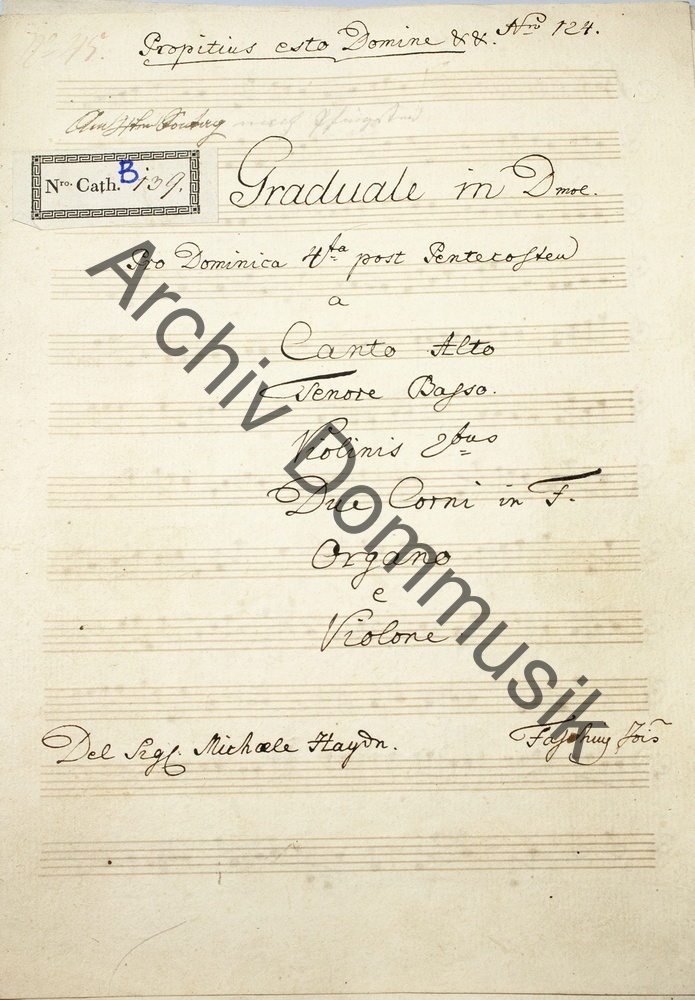 Propitius esto Domine &&. Nro 124.
Am 4ten Sontag nach Pfingsten
Nro. Cath. B 139.
Graduale in Dmoe.
Pro Dominica 4ta post Pentecosten
a
Canto Alto
Tenore Basso.
Violinis 2bus
Due Corni in F.
Organo
e
Violone
Del Sigl. Michaele Haydn.
Archiv Dommusik